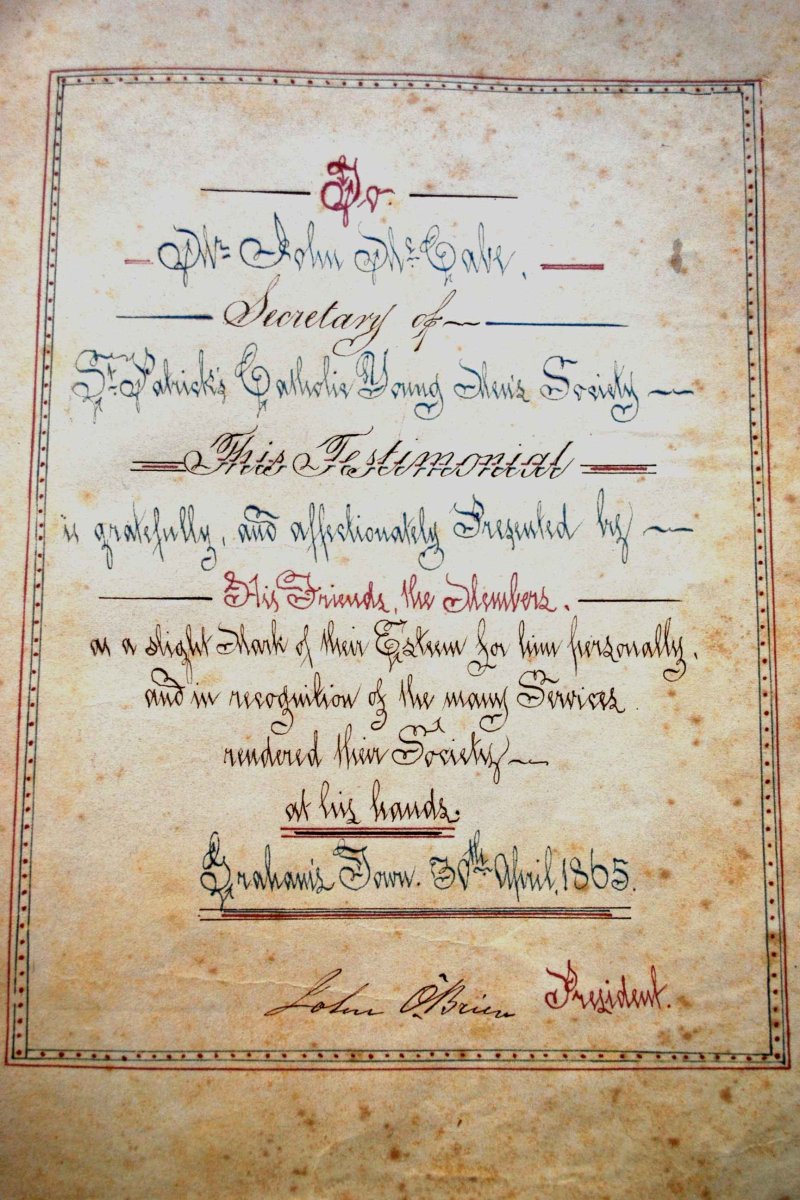 To
Mr. John McCabe,
Secretary of
St. Patrick's Catholic Young Men's Society
This Testimonial
is gratefully, and affectionately Presented by
His Friends, the Members.
as a slight Mark of their Esteem for him personally,
and in recognition of the many Services
rendered their Society
at his hands.
Graham's Town. 30th April, 1865.
John O'Brien President.